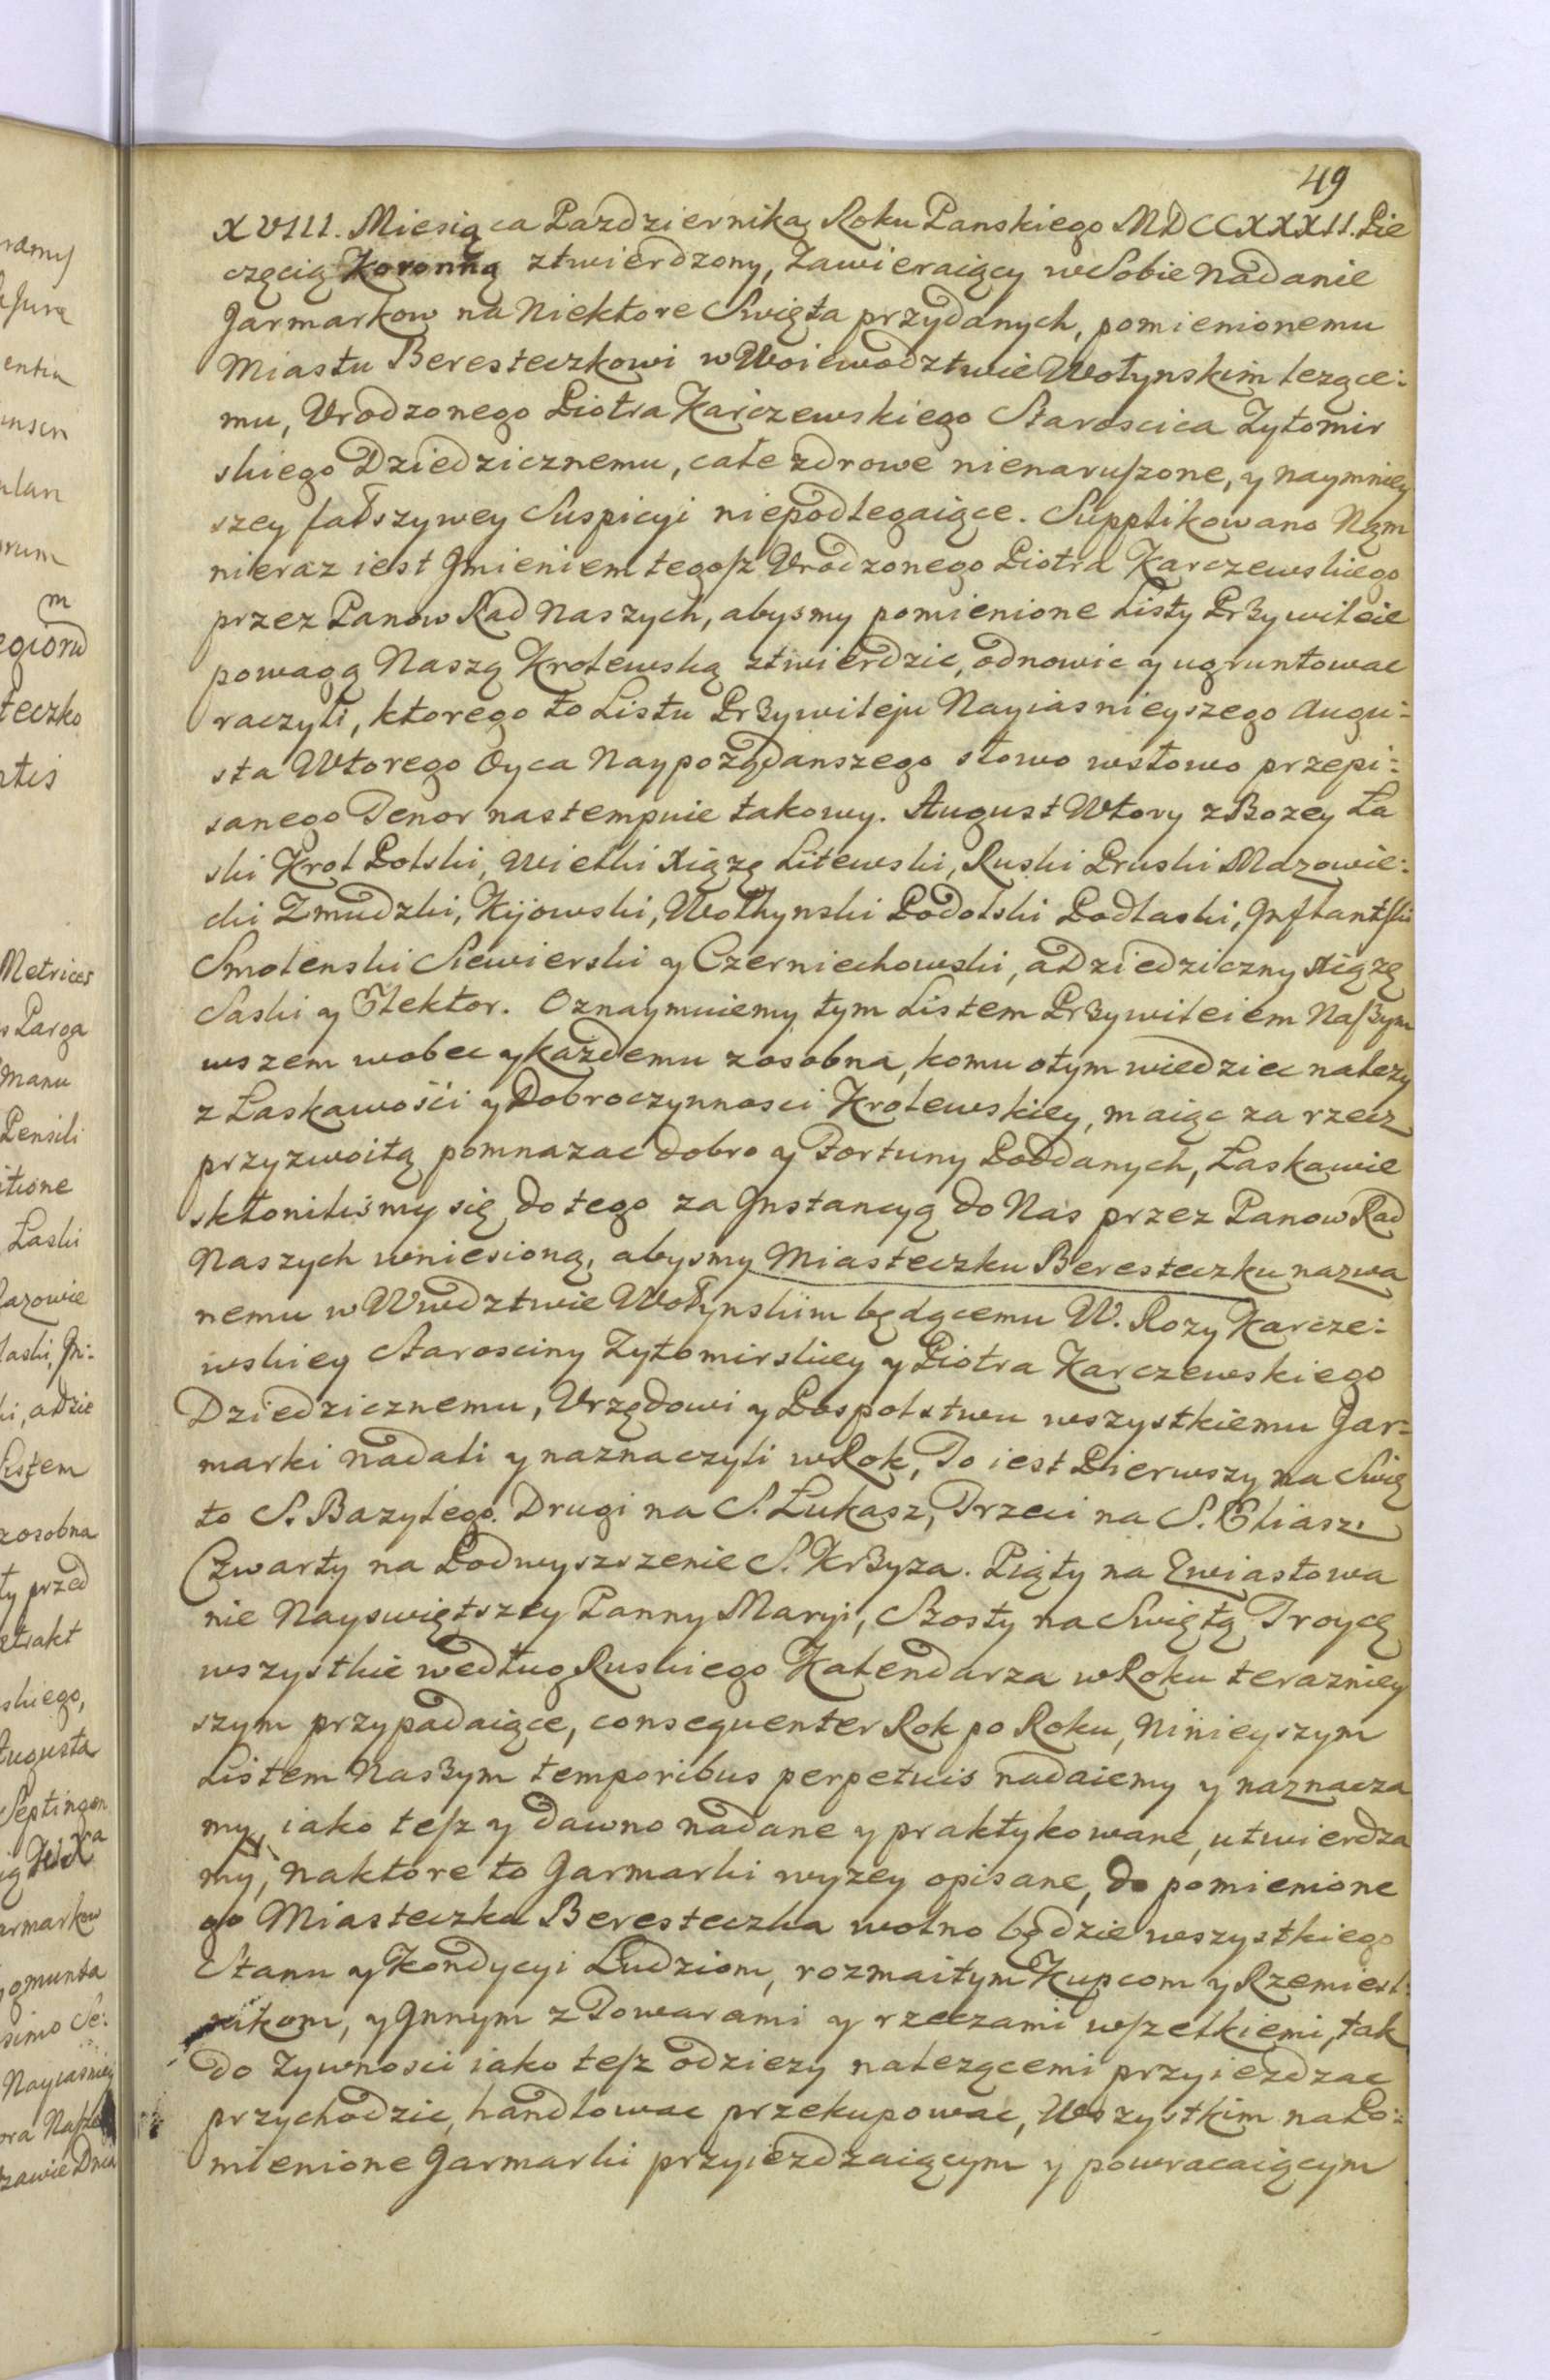 49
XVIII. Miesiąca Pazdziernika Roku Panskiego MDCCXXXII. Pie
częcią Koronną ztwierdzony, Zawieraiący w Sobie nadanie
Jarmarkow na Niektore Swięta przydanych, pomienionemu
Miastu Beresteczkowi w Woiewodztwie Wołynskim lezące:
mu, Urodzonego Piotra Karczewskiego Staroscica Zytomir
skiego Dziedzicznemu, całe zdrowe nienaruſzone, y naymniey
szey fałszywey Suspicyi niepodlegaiące. Supplikowano Nam
nieraz iest Jmieniem tegoſz Urodzonego Piotra Karczewskiego
przez Panow Rad Naszych, abysmy pomienione Listy Przywileie
powagą Naszą Krolewską ztwierdzic, odnowic y ugruntowac
raczyli, ktorego to Listu Przywileju Nayiasnieyszego Augu:
sta Wtorego Oyca Naypoządanszego słowo wsłowo przepi:
sanego Tenor nastempuie takowy. August Wtory z Bozey Ła
ski Krol Polski, Wielki Xiązę Litewski, Ruski Pruski Mazowie:
cki Zmudzki, Kijowski, Wołhynski Podolski Podlaski, Jnflantſki
Smolenski Siewierski y Czerniechowski, a Dziedziczny Xiązę
Saski y Elektor. Oznaymuiemy tym Listem Przywileiem Naſzym
wszem wobec y kazdemu zosobna, komu otym wiedziec nalezy
z Łaskawości y Dobroczynnosci Krolewskiey, maiąc za rzecz
przyzwoitą pomnazac dobro y Fortuny Poddanych, Łaskawie
skłoniliśmy się do tego za Jnstancyą do Nas przez Panow Rad
Naszych wniesioną, abysmy Miasteczku Beresteczku nazwa
nemu w Wwdztwie Wołynskim będącemu W. Rozy Karcze:
wskiey Starosciny Zytomirskiey y Piotra Karczewskiego
Dziedzicznemu, Urzędowi y Pospolstwu wszystkiemu Jar=
marki nadali y naznaczyli w Rok, To iest Pierwszy na Swię
to S. Bazylego. Drugi na S. Łukasz, Trzeci na S. Eliasz.
Czwarty na Podwyszszenie S. Krzyza. Piąty na Zwiastowa
nie Nayswiętszey Panny Maryi, Szosty na Swiętą Troycę
wszystkie według Ruskiego Kalendarza w Roku terazniey
szym przypadaiące, consequenter Rok po Roku, Ninieyszym
Listem Naszym temporibus perpetuis nadaiemy y naznacza
my, iako teſz y dawno nadane y praktykowane, utwierdza
my, naktore to Jarmarki wyzey opisane, do pomienione
go Miasteczka Beresteczka wolno będzie wszystkiego
Stanu y Kondycyi Ludziom, rozmaitym Kupcom y Rzemiesl:
nikom, y Jnnym z Towarami y rzeczami wſzelkiemi, tak
do Zywnosci iako teſz odziezy nalezącemi przyiezdzac
przychodzic, handlowac przekupowac, Wszystkim na Po:
mienione Jarmarki przyiezdzaiącym y powracaiącym